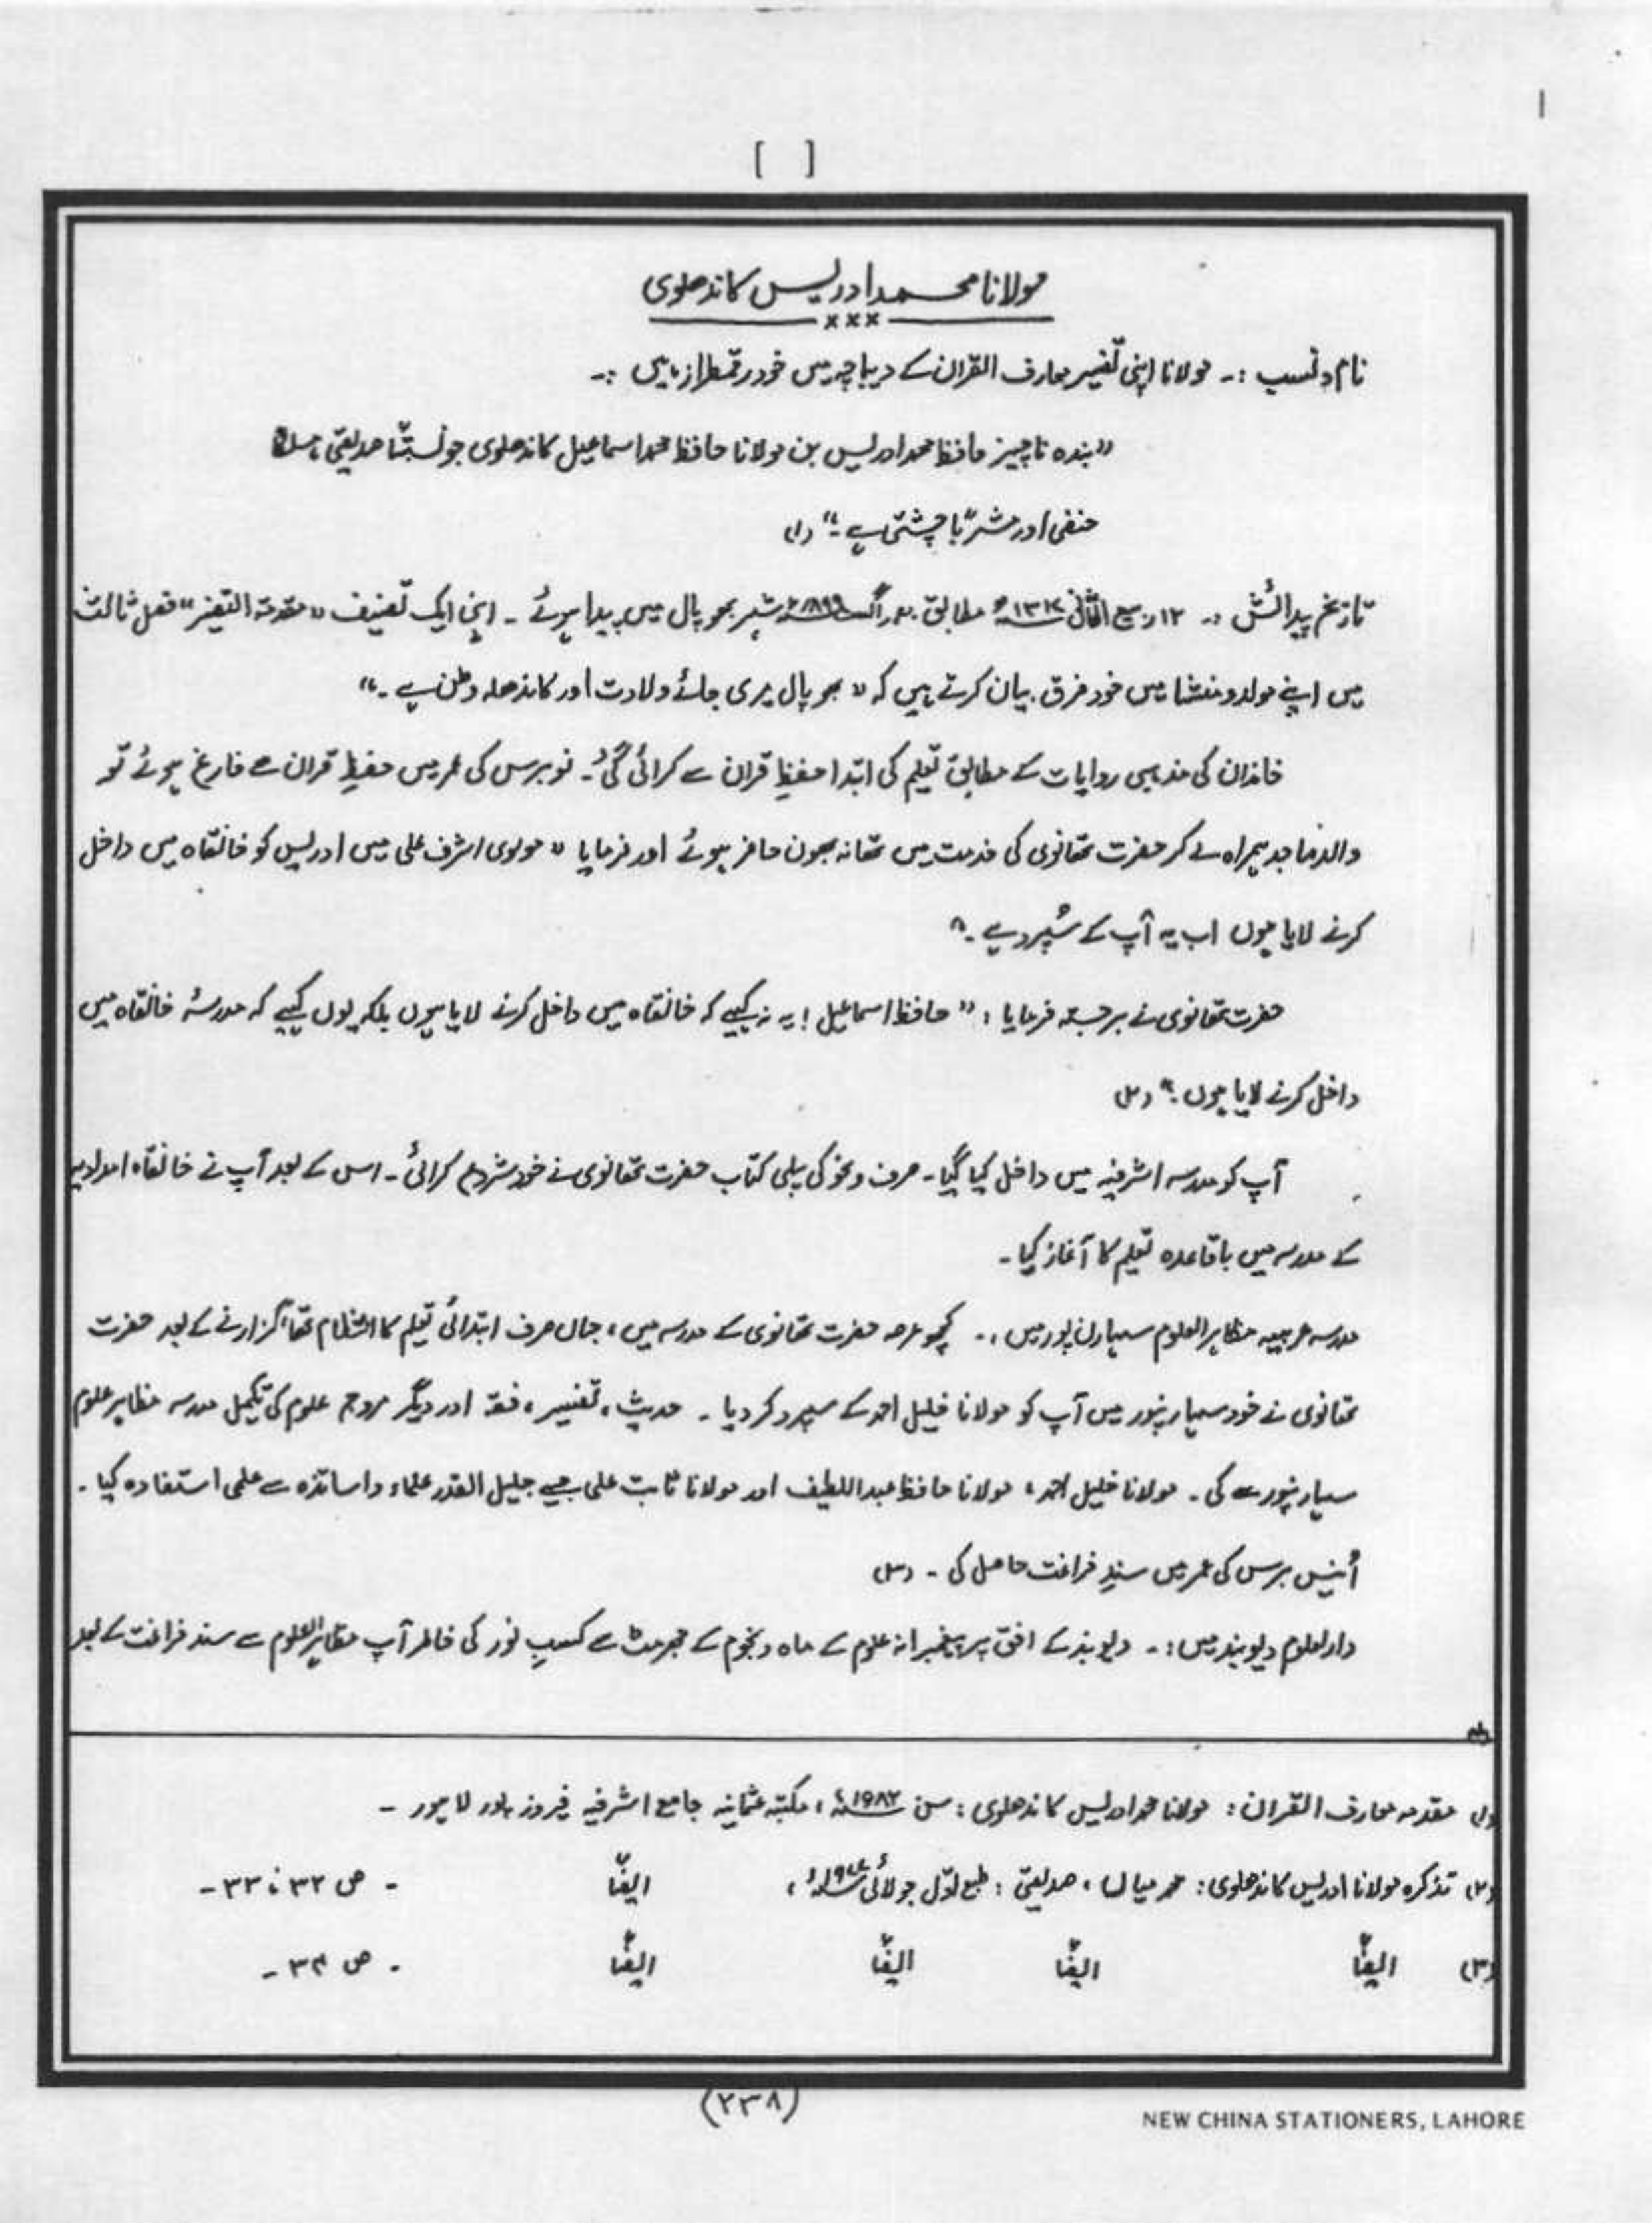 [ ]
مولانا محمد ادریس کاندھلوی
×××
نام و نسب :۔ مولانا اپنی تفسیر معارف القران کے دیباچہ میں خود رقمطراز ہیں :۔
"بندہ ناچیز حافظ محمد ادریس بن مولانا حافظ محمد اسماعیل کاندھلوی جو نسبتًا صدیقی، مسلکًا
حنفی اور مشربًا چشتی ہے۔" (۱)
تاریخ پیدائش :۔ ۱۲ ربیع الثانی ۱۳۱۷ھ مطابق ۲۰ اگست ۱۸۹۹ء شہر بھوپال میں پیدا ہوئے ۔ اپنی ایک تصنیف "مقدمۃ التفسیر" فصل ثالث
میں اپنے مولد و منشا میں خود فرق بیان کرتے ہیں کہ " بھوپال میری جائے ولادت اور کاندھلہ وطن ہے ۔"
خاندان کی مذہبی روایات کے مطابق تعلیم کی ابتدا حفظِ قران سے کرائی گئی ۔ نو برس کی عمر میں حفظِ قران سے فارغ ہوئے تو
والد ماجد ہمراہ لے کر حضرت تھانوی کی خدمت میں تھانہ بھون حاضر ہوئے اور فرمایا " مولوی اشرف علی میں ادریس کو خانقاہ میں داخل
کرنے لایا ہوں اب یہ آپ کے سُپرد ہے ۔"
حضرت تھانوی نے برجستہ فرمایا : " حافظ اسماعیل ! یہ نہ کہیے کہ خانقاہ میں داخل کرنے لایا ہوں بلکہ یوں کہیے کہ مدرسۂ خانقاہ میں
داخل کرنے لایا ہوں ۔" (۲)
آپ کو مدرسہ اشرفیہ میں داخل کیا گیا ۔ صرف و نحو کی پہلی کتاب حضرت تھانوی نے خود شروع کرائی ۔ اس کے بعد آپ نے خانقاہ امدادیہ
کے مدرسہ میں باقاعدہ تعلیم کا آغاز کیا ۔
مدرسہ عربیہ مظاہر العلوم سہارن پور میں :۔ کچھ عرصہ حضرت تھانوی کے مدرسہ میں، جہاں صرف ابتدائی تعلیم کا انتظام تھا، گزارنے کے بعد حضرت
تھانوی نے خود سہارنپور میں آپ کو مولانا خلیل احمد کے سپرد کر دیا ۔ حدیث، تفسیر، فقہ اور دیگر مروجہ علوم کی تکمیل مدرسہ مظاہر علوم
سہارنپور سے کی ۔ مولانا خلیل احمد، مولانا حافظ عبداللطیف اور مولانا ثابت علی جیسے جلیل القدر علماء و اساتذہ سے علمی استفادہ کیا ۔
اُنیس برس کی عمر میں سندِ فراغت حاصل کی ۔ (۳)
دارلعلوم دیوبند میں :۔ دیوبند کے افق پر پیغمبرانہ علوم کے ماہ و نجوم کے جھرمٹ سے کسبِ نور کی خاطر آپ مظاہر العلوم سے سند فراغت کے بعد
(۱) مقدمہ معارف القران : مولانا محمد ادریس کاندھلوی : سن ۱۹۸۲ء ، مکتبہ عثمانیہ جامع اشرفیہ فیروز پور لاہور ۔
(۲) تذکرہ مولانا ادریس کاندھلوی : محمد میاں ، صدیقی : طبع اوّل جولائی ۱۹۷۷ء ، ایضًا ۔ ص ۳۲ ، ۳۳ ۔
(۳) ایضًا ایضًا ایضًا ایضًا ۔ ص ۳۴ ۔
(۲۳۸)
NEW CHINA STATIONERS, LAHORE